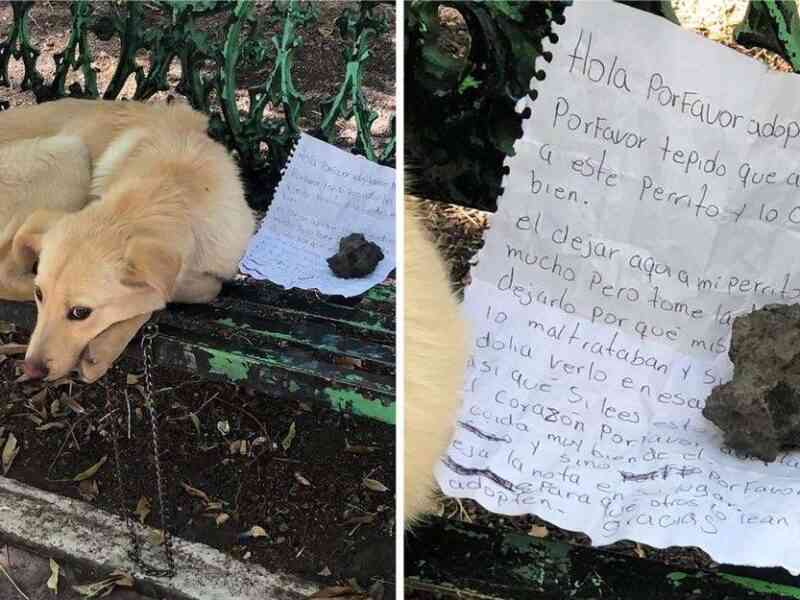 Hola PorFavor adop
PorFavor tepido que a
a este perrito y lo c
bien.
el dejar aqui a mi perrito
mucho pero tome la
dejarlo por qué mis
lo maltrataban y s
dolia verlo en esa
así qué si lees est
el corazón porfavor
cuida muy bien de el
y sino PorFavor
deja la nota en su lugar
Para que otros lo lean
adopten.
gracias